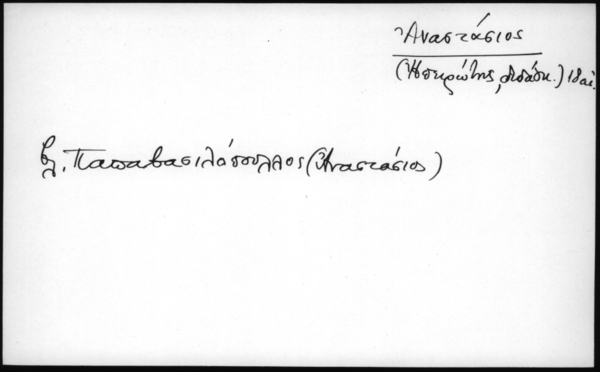 Ἀναστάσιος
(Ἠπειρώτης, διδάσκ.) 18 αἰ.
βλ. Παπαβασιλόπουλλος (Ἀναστάσιος)